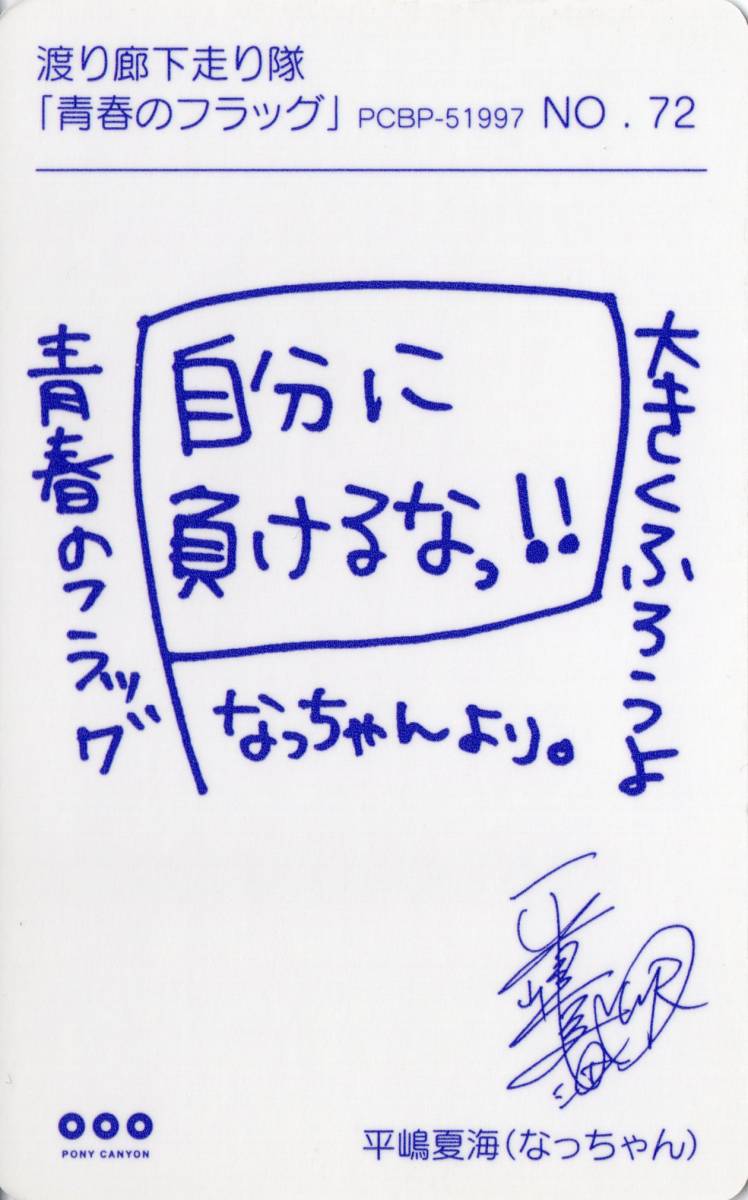 渡り廊下走り隊
「青春のフラッグ」 PCBP-51997 NO . 72
大きくふろうよ
青春のフラッグ
自分に
負けるなっ!!
なっちゃんより。
PONY CANYON
平嶋夏海(なっちゃん)